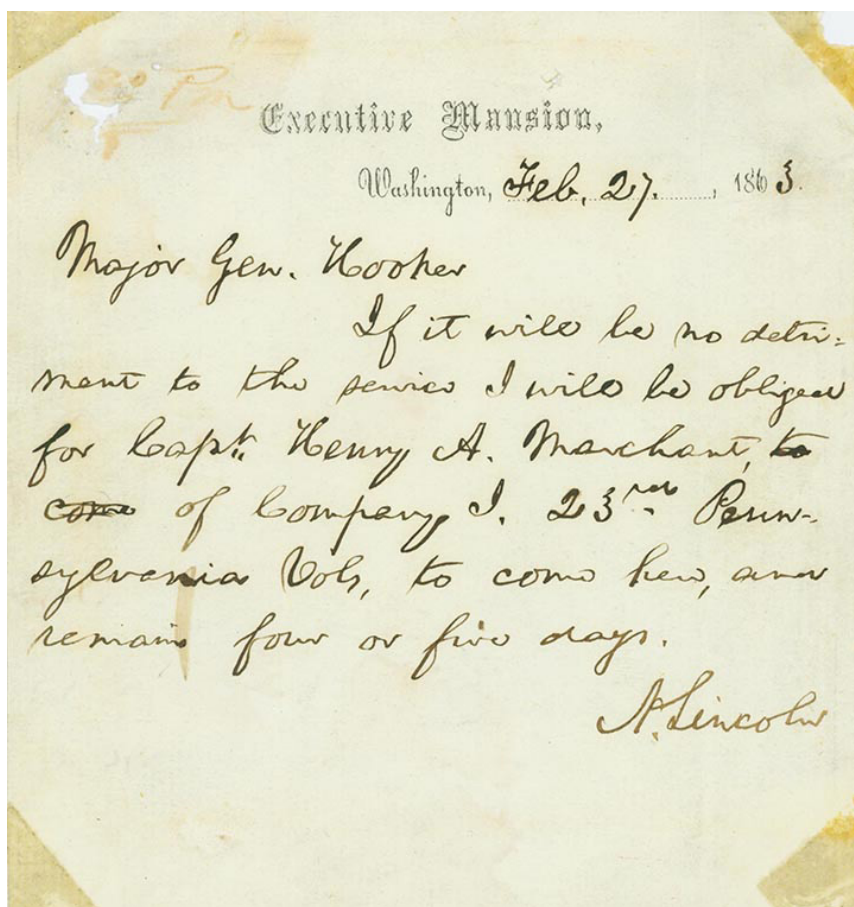 Executive Mansion,
Washington, Feb. 27. , 1863.
Major Gen. Hooker
If it will be no detri-
ment to the service I will be obliged
for Capt. Henry A. Marchant, to
come of Company, I. 23rd Penn-
sylvania Vols, to come here, and
remain four or five days.
A. Lincoln